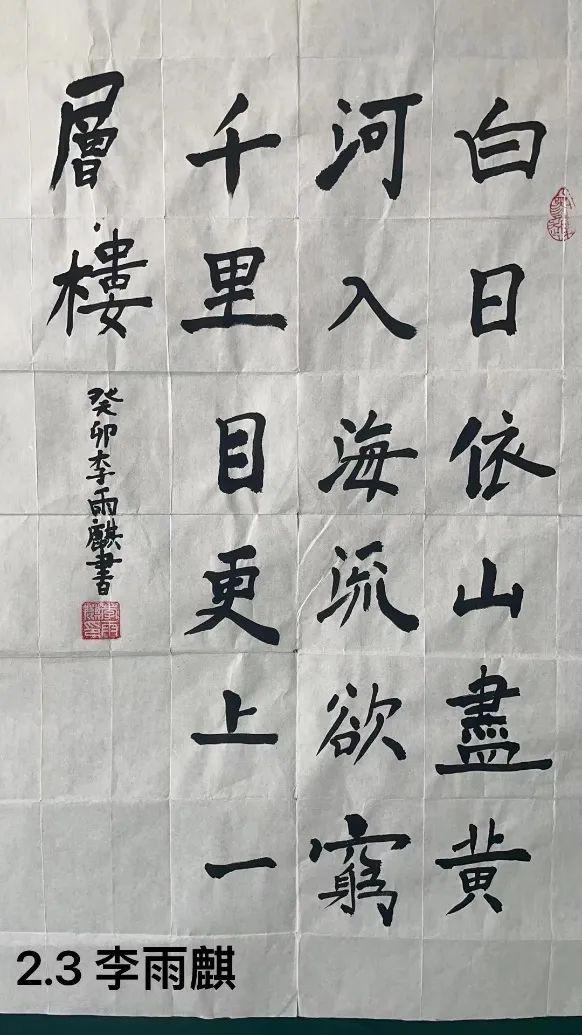 白日依山盡黄
河入海流欲窮
千里目更上一
層樓
癸卯李雨麒書
2.3 李雨麒